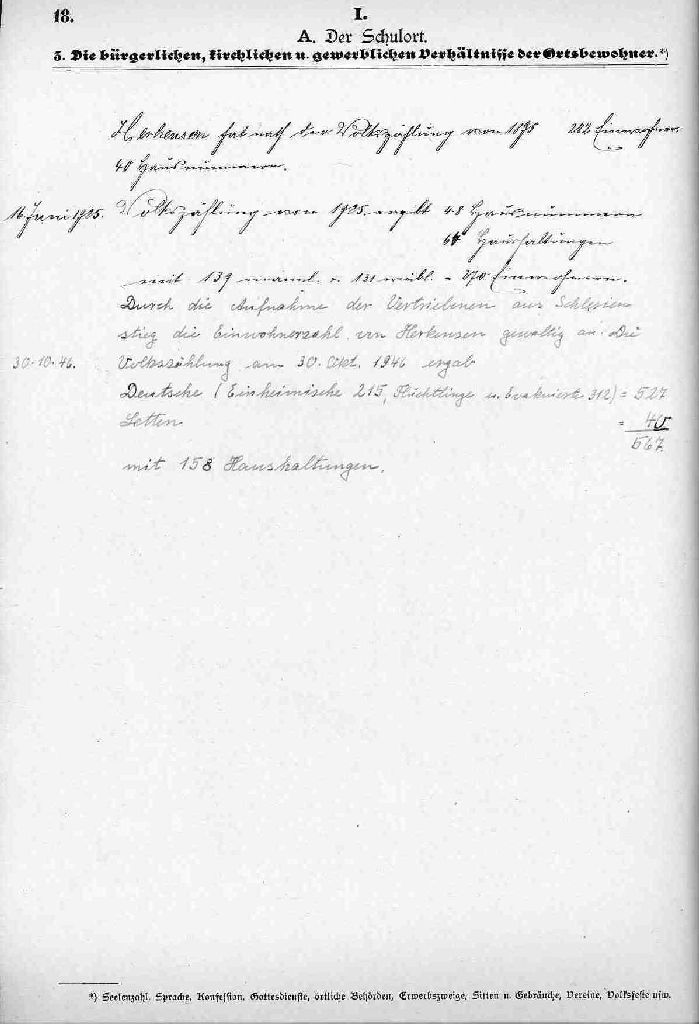 18.
I.
A. Der Schulort.
3. Die bürgerlichen, kirchlichen u. gewerblichen Verhältnisse der Ortsbewohner.*)
Herkensen hat nach der Volkszählung von 1895 282 Einwohner
40 Hausnummern.
16 Juni 1905. Volkszählung von 1905 ergibt 48 Hausnummern
64 Haushaltungen
mit 139 männl. u. 131 weibl. = 270 Einwohnern.
Durch die Aufnahme der Vertriebenen aus Schlesien
stieg die Einwohnerzahl von Herkensen gewaltig an. Die
30.10.46. Volkszählung am 30. Okt. 1946 ergab
Deutsche (Einheimische 215, Flüchtlinge u. Evakuierte 312) = 527
Letten = 40
567
mit 158 Haushaltungen.
*) Seelenzahl, Sprache, Konfession, Gottesdienste, örtliche Behörden, Erwerbszweige, Sitten u. Gebräuche, Vereine, Volksfeste usw.